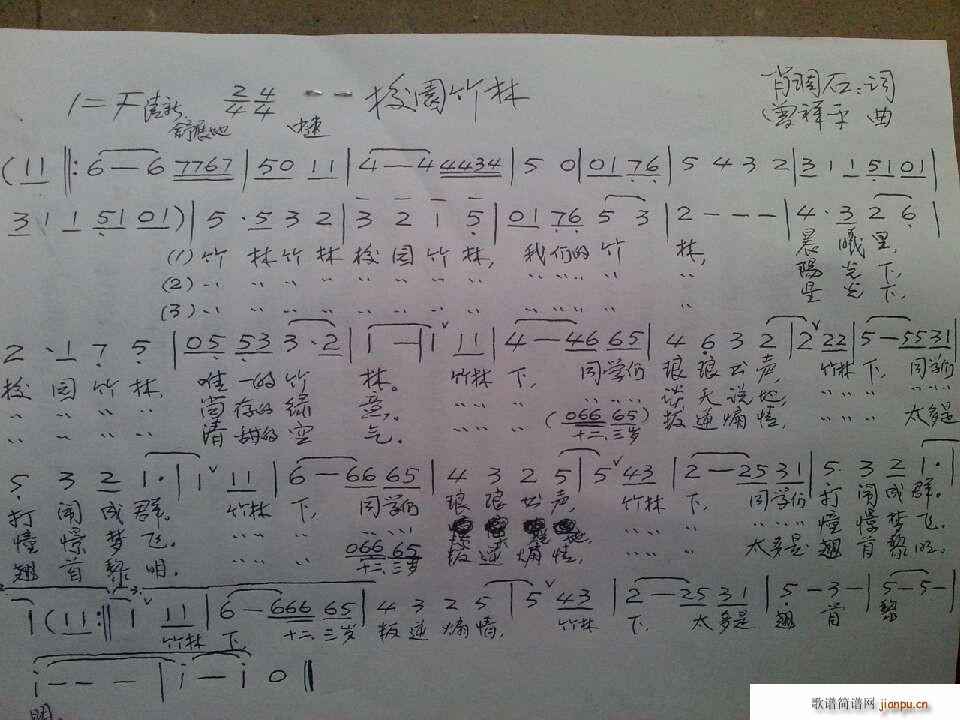 1=F 清新 舒展地 2/4 4/4 中速 -- 校园竹林 肖调石:词
曾祥平 曲
(11 ‖: 6—6 7767 | 50 11 | 4—4 4434 | 5 0 | 01 76 | 5 4 3 2 | 3 1 1 51 01 |
3 1 1 51 01) | 5 · 5 3 2 | 3 2 1 5 | 01 76 5 3 | 2 - - - | 4 · 3 2 6 |
(1) 竹 林 竹 林 校 园 竹 林, 我们的 竹 林, 晨 曦 里,
(2) 〃 〃 〃 〃 〃 〃 〃 〃 〃 〃 〃 〃 〃 阳 光 下,
(3) 〃 〃 〃 〃 〃 〃 〃 〃 〃 〃 〃 〃 〃 星 光 下,
2 · 1 7 5 | 05 53 3 · 2 | 1 — | 1 ˅ 11 | 4 — 46 65 | 4 6 3 2 | 2 ˅ 22 | 5 — 55 31 |
校 园 竹 林, 唯一的 竹 林。 竹林 下, 同学们 琅 琅 书 声, 竹林 下, 同学们
〃 〃 〃 〃 尚存的 绿 意。 〃 〃 〃 〃 〃 〃 谈 天 说 地, 〃 〃 〃 〃 〃 〃
〃 〃 〃 〃 清甜的 空 气。 〃 〃 〃 (066 65) 十二、三岁 叛 逆 煽 情, 〃 〃 〃 太多是
5 3 2 1 · | 1 ˅ 11 | 6 — 66 65 | 4 3 2 5 | 5 ˅ 43 | 2 — 25 31 | 5 · 3 2 1 · |
打 闹 成 群。 竹林 下, 同学们 琅 琅 书 声, 竹林 下, 同学们 打 闹 成 群。
憧 憬 梦 飞。 〃 〃 〃 〃 〃 〃 〃 〃 〃 〃 〃 〃 憧 憬 梦 飞。
翘 首 黎 明。 〃 〃 〃 066 65 十二、三岁 叛 逆 煽 情, 〃 〃 〃 太多是 翘 首 黎 明。
1 (11 :‖ 1 ˅ 11 | 6 — 666 65 | 4 3 2 5 | 5 ˅ 43 | 2 — 25 31 | 5 - 3 - | 5 - 5 - |
竹林 下, 十二、三岁 叛 逆 煽 情, 竹林 下, 太多是 翘 首 黎
i - - - | i — i 0 ‖
明。
歌谱简谱网 jianpu.cn